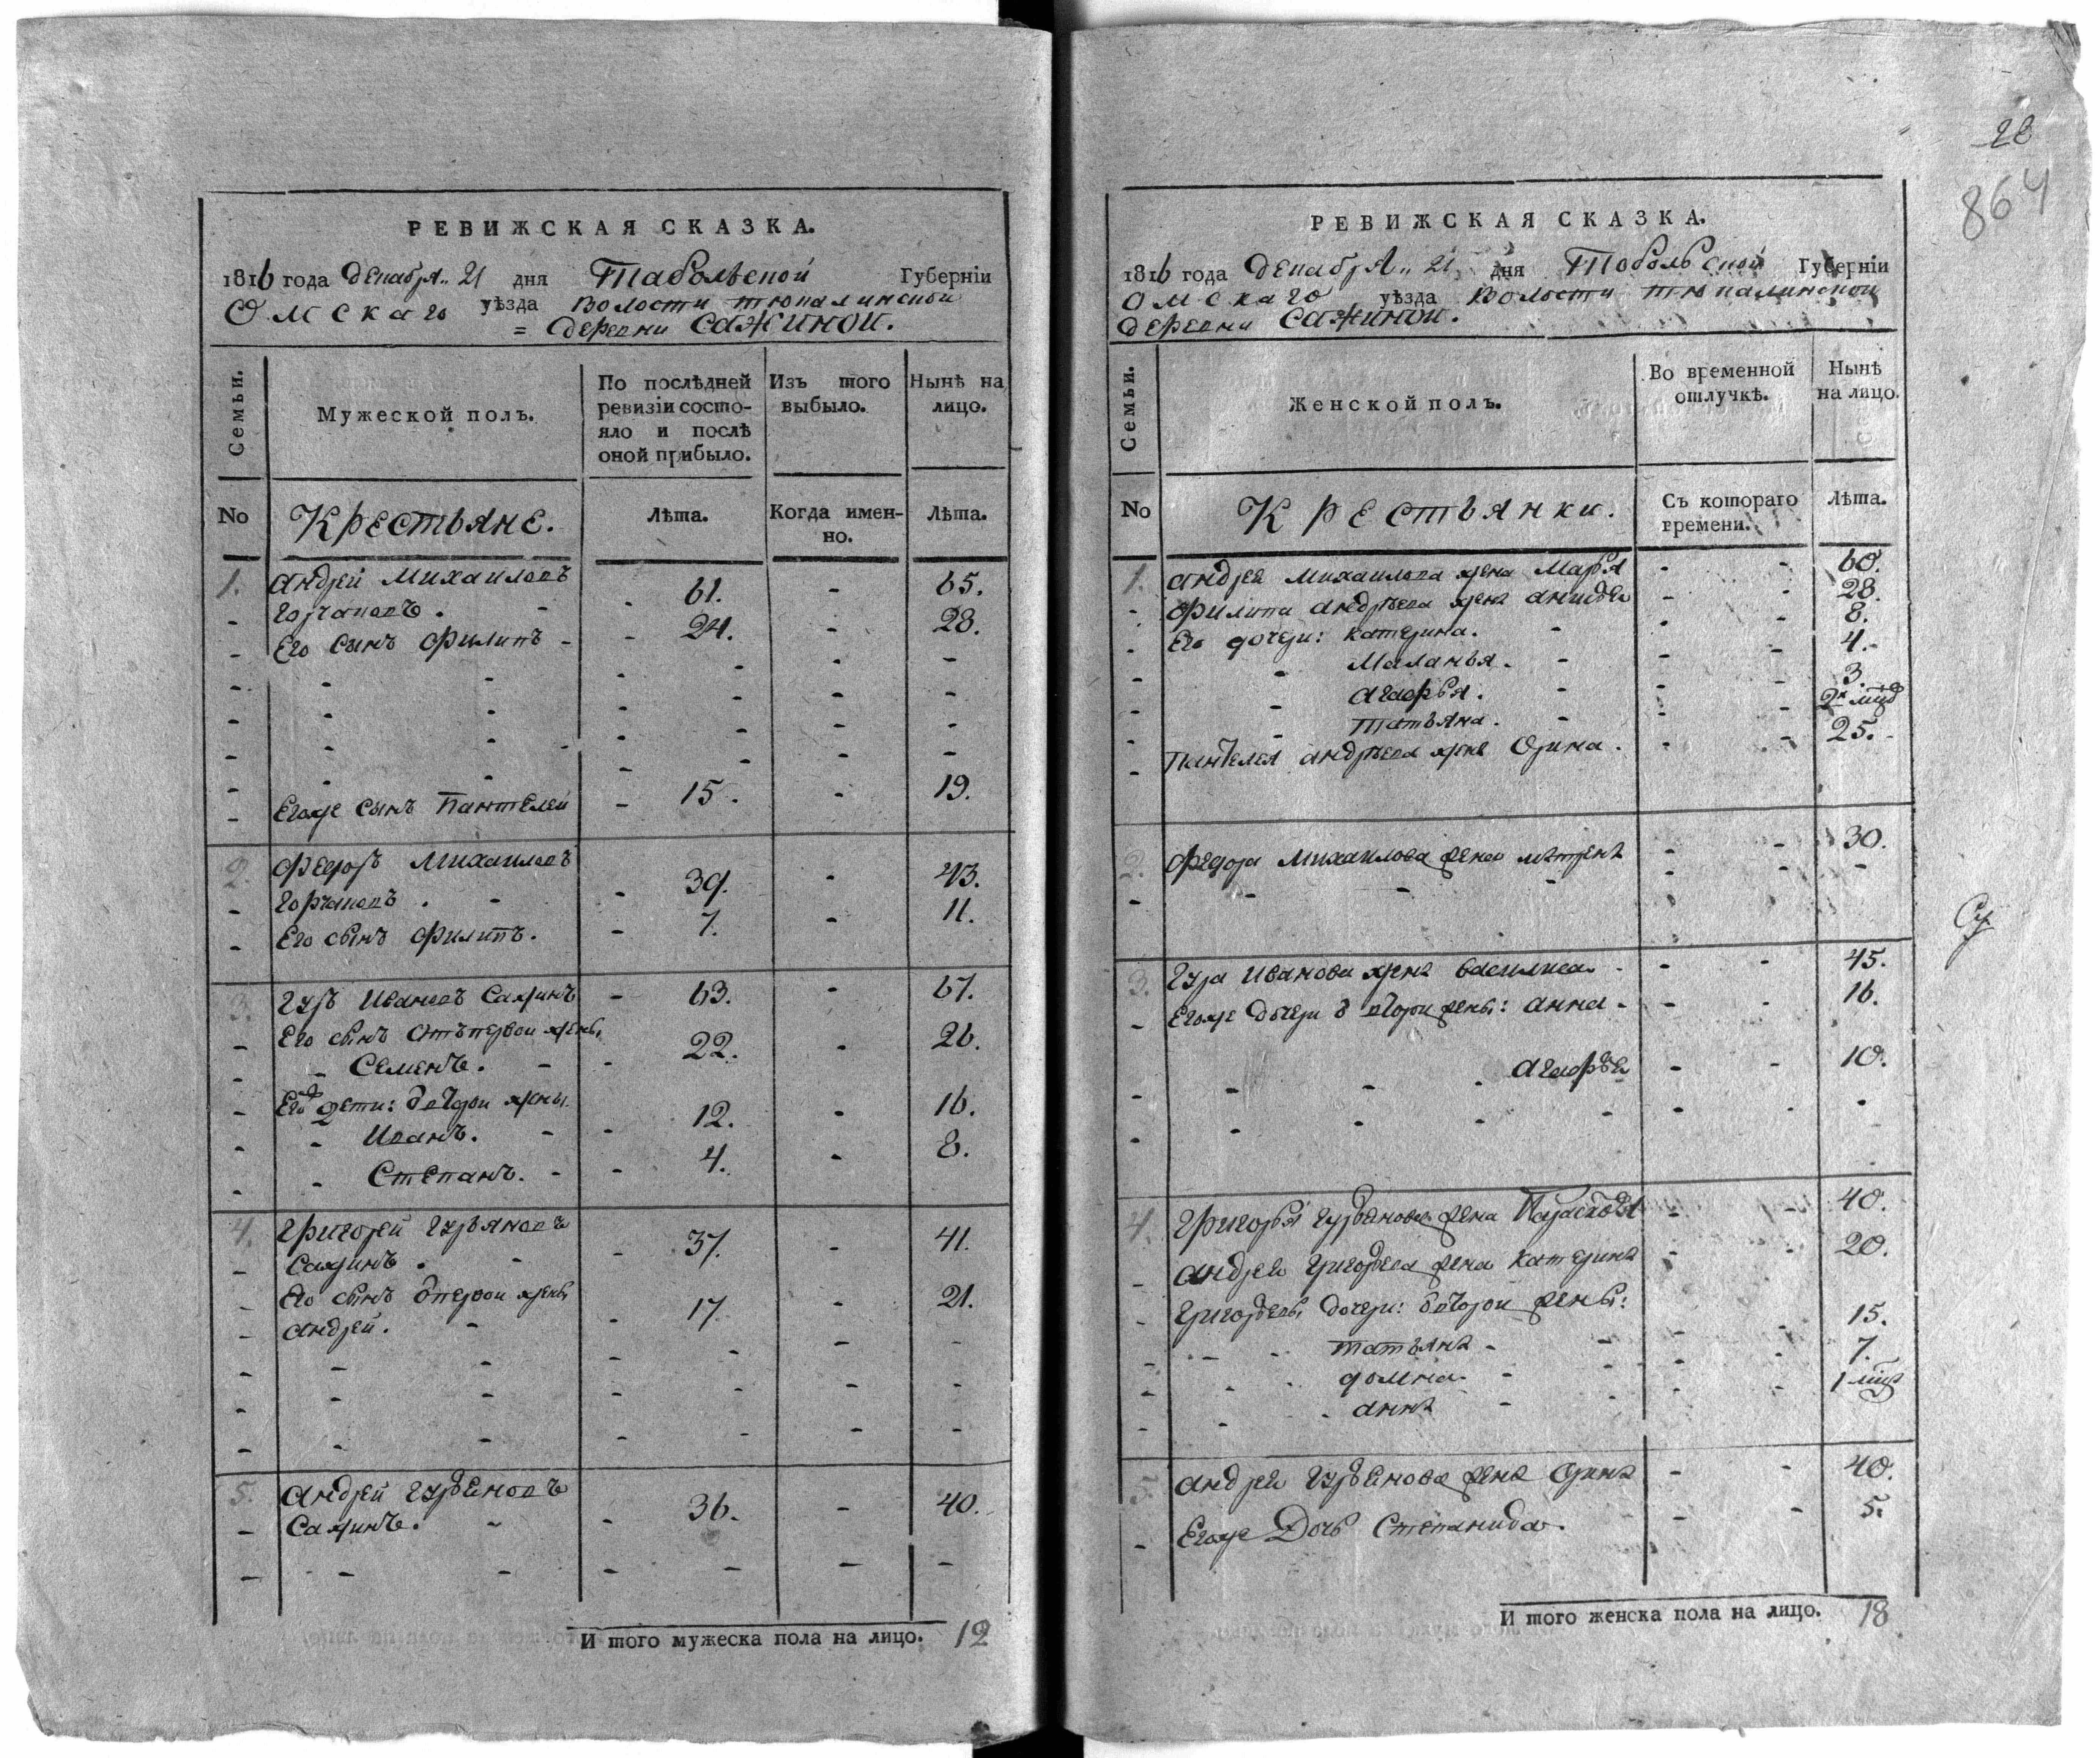 РЕВИЖСКАЯ СКАЗКА.
1816 года декабря 21 дня Табольской Губерніи
Омскаго уѣзда Волости тюкалинской
= деревни Сажиной.
Семьи. Мужеской полъ. По послѣдней ревизіи состояло и послѣ оной прибыло. Изъ того выбыло. Нынѣ на лицо.
No Крестьяне. Лѣта. Когда именно. Лѣта.
1. андрей Михаиловъ
Горчаковъ. - 61. - 65.
- Его сынъ Филипъ - - 24. - 28.
- Егоже сынъ Пантелей - 15. - 19.
2. Федоръ Михаиловъ
- Горчаковъ. - - 39. - 43.
- Его сынъ Филипъ. - 7. - 11.
3. Гуръ Ивановъ Сажинъ - 63. - 67.
- Его сынъ отъ первой жены
- Семенъ. - - 22. - 26.
- Его дети: второй жены
- Иванъ. - - 12. - 16.
- Степанъ. - - 4. - 8.
4. Григорей Гурьяновъ
- Сажинъ. - - 37. - 41.
- Его сынъ первой жены
- андрей. - - 17. - 21.
5. андрей Гурьяновъ
- Сажинъ. - - 36. - 40.
И того мужеска пола на лицо. 12
28
864
РЕВИЖСКАЯ СКАЗКА.
1816 года декабря 21 дня Тобольской Губерніи
Омскаго уѣзда Волости тюкалинской
деревни Сажиной.
Семьи. Женской полъ. Во временной отлучкѣ. Нынѣ на лицо.
No Крестьянки. Съ котораго времени. Лѣта.
1. андрея Михаилова жена Марья - - 60.
- Филипа андреева жена - - 28.
- Его дочери: катерина. - - 8.
- Маланья. - - 4.
- агафья. - - 3.
- татьяна. - - 2х
- Пантелея андреева жена Орина. - - 25.
2. Федора Михаилова жена матрена - - 30.
3. Гура Иванова жена василиса - - 45.
- Егоже дочери второй жены: анна - - 16.
- агафья - - 10.
4. Григорья Гурьянова жена Парасковья - - 40.
- андрея Григорьева жена катерина - - 20.
- Григорьевы дочери: второй жены:
- татьяна - - 15.
- домна - - 7.
- анна - - 1
5. андрея Гурьянова жена Орина - - 40.
- Егоже Дочь Степанида. - - 5.
И того женска пола на лицо. 18